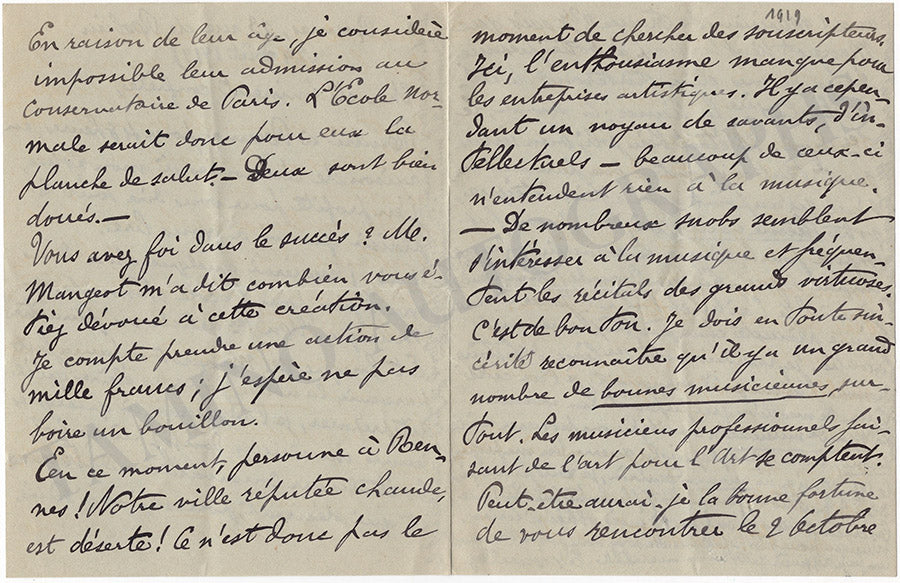 En raison de leur âge, je considère
impossible leur admission au
Conservatoire de Paris. L'Ecole nor-
male serait donc pour eux la
planche de salut. - Deux sont bien
doués. -
Vous avez foi dans le succés ? Me.
Mangeot m'a dit combien vous é-
tiez dévoué à cette création.
Je compte prendre une action de
mille francs ; j'espère ne pas
boire un bouillon.
En ce moment, personne à Ren-
nes ! Notre ville réputée chaude,
est déserte ! Ce n'est donc pas le
1919
moment de chercher des souscripteurs.
Ici, l'enthousiasme manque pour
les entreprises artistiques. Il y a cepen-
dant un noyau de savants, d'in-
tellectuels - beaucoup de ceux-ci
n'entendent rien à la musique.
- De nombreux snobs semblent
s'intéresser à la musique et fréquen-
tent les récitals des grands virtuoses.
C'est de bon ton. Je dois en toute sin-
cérité reconnaître qu'il y a un grand
nombre de bonnes musiciennes, sur-
tout. Les musiciens professionnels fai-
sant de l'art pour l'Art se comptent.
Peut-être aurai-je la bonne fortune
de vous rencontrer le 2 Octobre
TAMINO AUTOGRAPHS